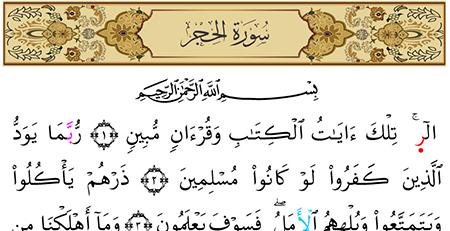 سُورَةُ الحِجْرِ
بِسْمِ اللَّهِ الرَّحْمَٰنِ الرَّحِيمِ
الٓر ۚ تِلْكَ ءَايَٰتُ ٱلْكِتَٰبِ وَقُرْءَانٍ مُّبِينٍ ﴿١﴾ رُّبَّمَا يَوَدُّ
ٱلَّذِينَ كَفَرُوا۟ لَوْ كَانُوا۟ مُسْلِمِينَ ﴿٢﴾ ذَرْهُمْ يَأْكُلُوا۟
وَيَتَمَتَّعُوا۟ وَيُلْهِهُمُ ٱلْأَمَلُ ۖ فَسَوْفَ يَعْلَمُونَ ﴿٣﴾ وَمَآ أَهْلَكْنَا مِن